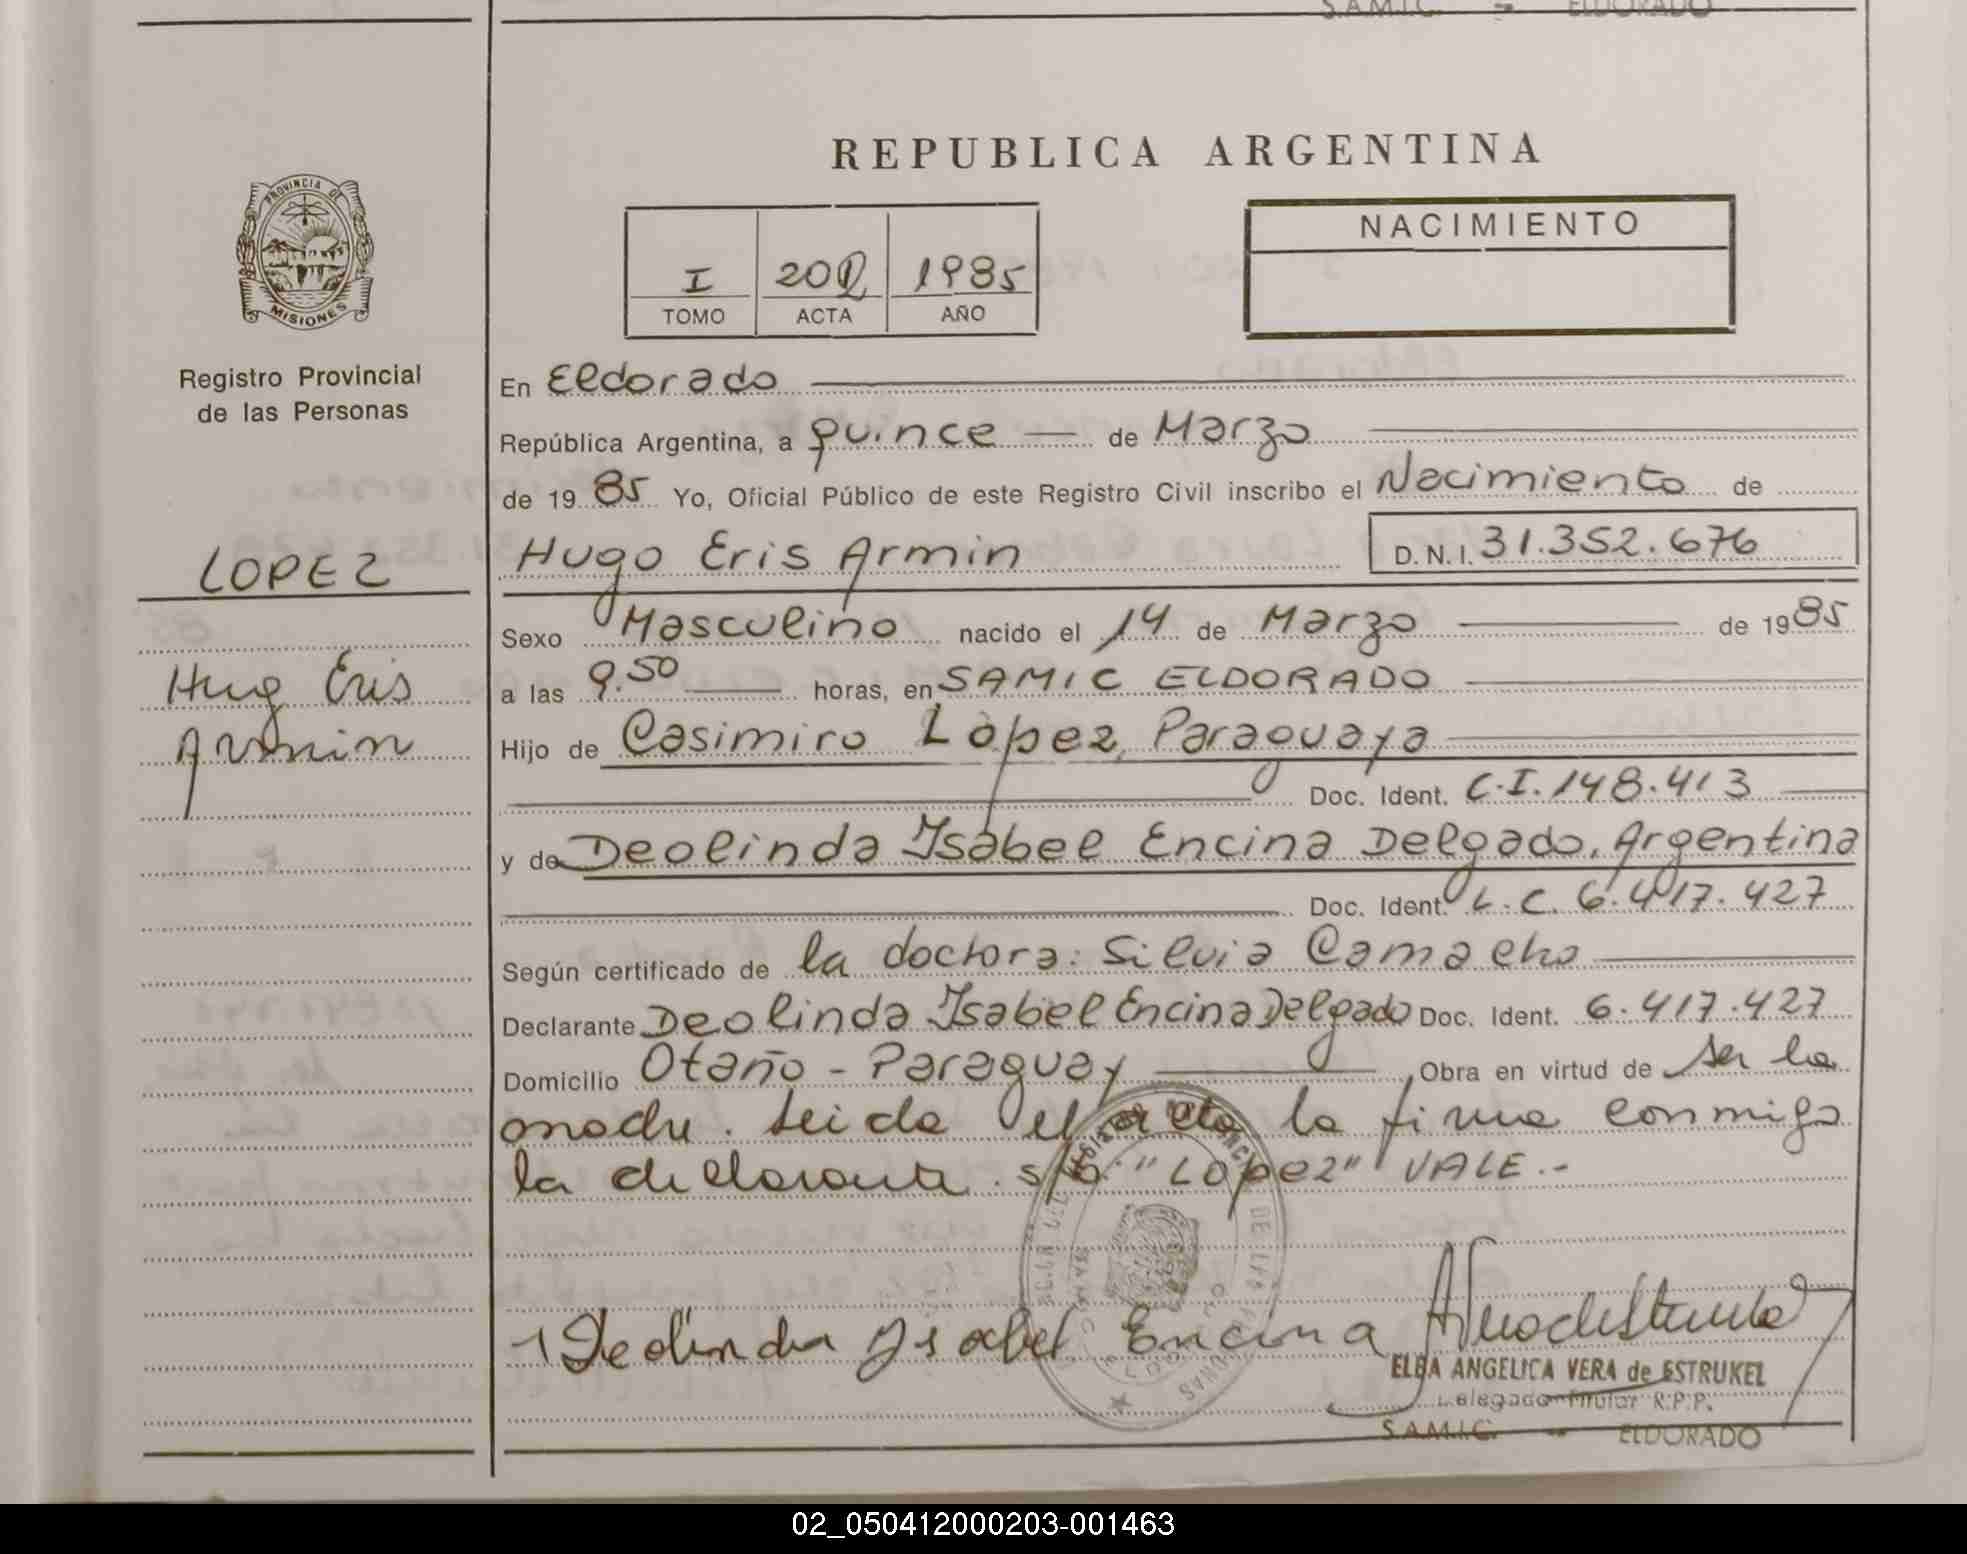 S.A.M.I.C. - ELDORADO
REPUBLICA ARGENTINA
PROVINCIA DE
MISIONES
NACIMIENTO
I 202 1985
TOMO ACTA AÑO
Registro Provincial
de las Personas
En Eldorado
República Argentina, a quince — de Marzo
de 19 85 Yo, Oficial Público de este Registro Civil inscribo el Nacimiento de
LOPEZ
Hugo Eris Armin D.N.I. 31.352.676
Sexo Masculino nacido el 14 de Marzo de 1985
Hug Eris
Armin
a las 9.50 horas, en SAMIC ELDORADO
Hijo de Casimiro Lòpez, Paraguaya
Doc. Ident. C.I. 148.413
y de Deolinda Ysabel Encina Delgado, Argentina
Doc. Ident. L.C. 6.417.427
Según certificado de la doctora: Silvia Camacho
Declarante Deolinda Ysabel Encina Delgado Doc. Ident. 6.417.427
Domicilio Otaño - Paraguay Obra en virtud de ser la
madre. Leida el acta la firma conmigo
la declarante. s/b: "Lopez" VALE.-
Deolinda Ysabel Encina
ELBA ANGELICA VERA de ESTRUKEL
Delegado Titular R.P.P.
S.A.M.I.C. - ELDORADO
02_050412000203-001463